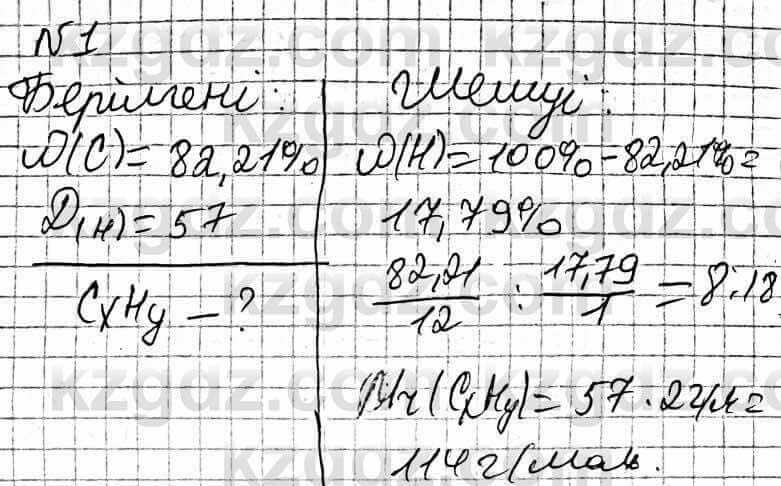 N1
Берілгені:
ω(C)=82,21%
D(H)=57
CxHy – ?
Шешуі:
ω(H)=100%-82,21%=
17,79%
82,21/12 : 17,79/1 = 8:18
Mr(CxHy)=57·2г/м=
114 г/моль.
kzgdz.com